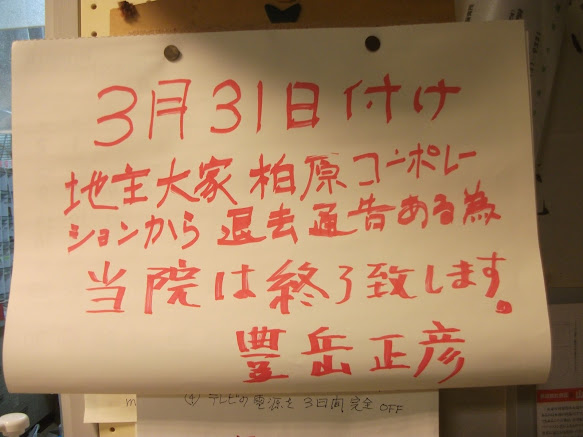 3月31日付け
地主大家柏原コーポレー
ションから退去通告ある為
当院は終了致します。
豊岳正彦
④テレビの電源を3日間完全OFF